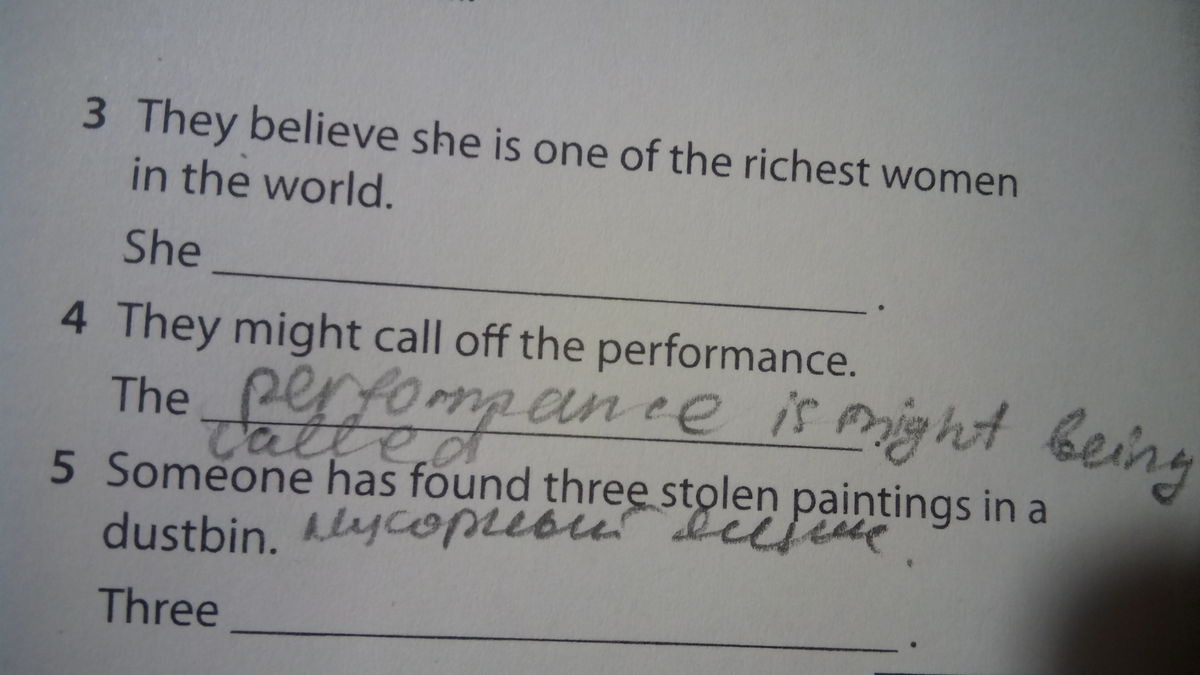 3 They believe she is one of the richest women
in the world.
She
4 They might call off the performance.
The performance is might being
called
5 Someone has found three stolen paintings in a
dustbin. мусорный
Three